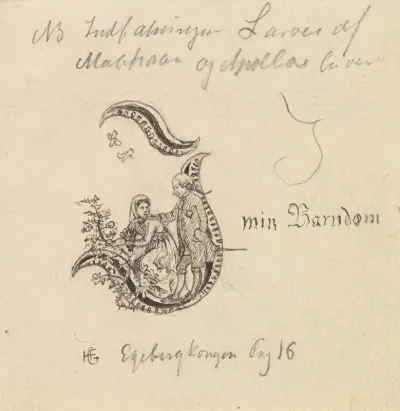 NB Indfatningen Larver af
Makhaon og
J
min Barndom
HG Egebergkongen Pag 16